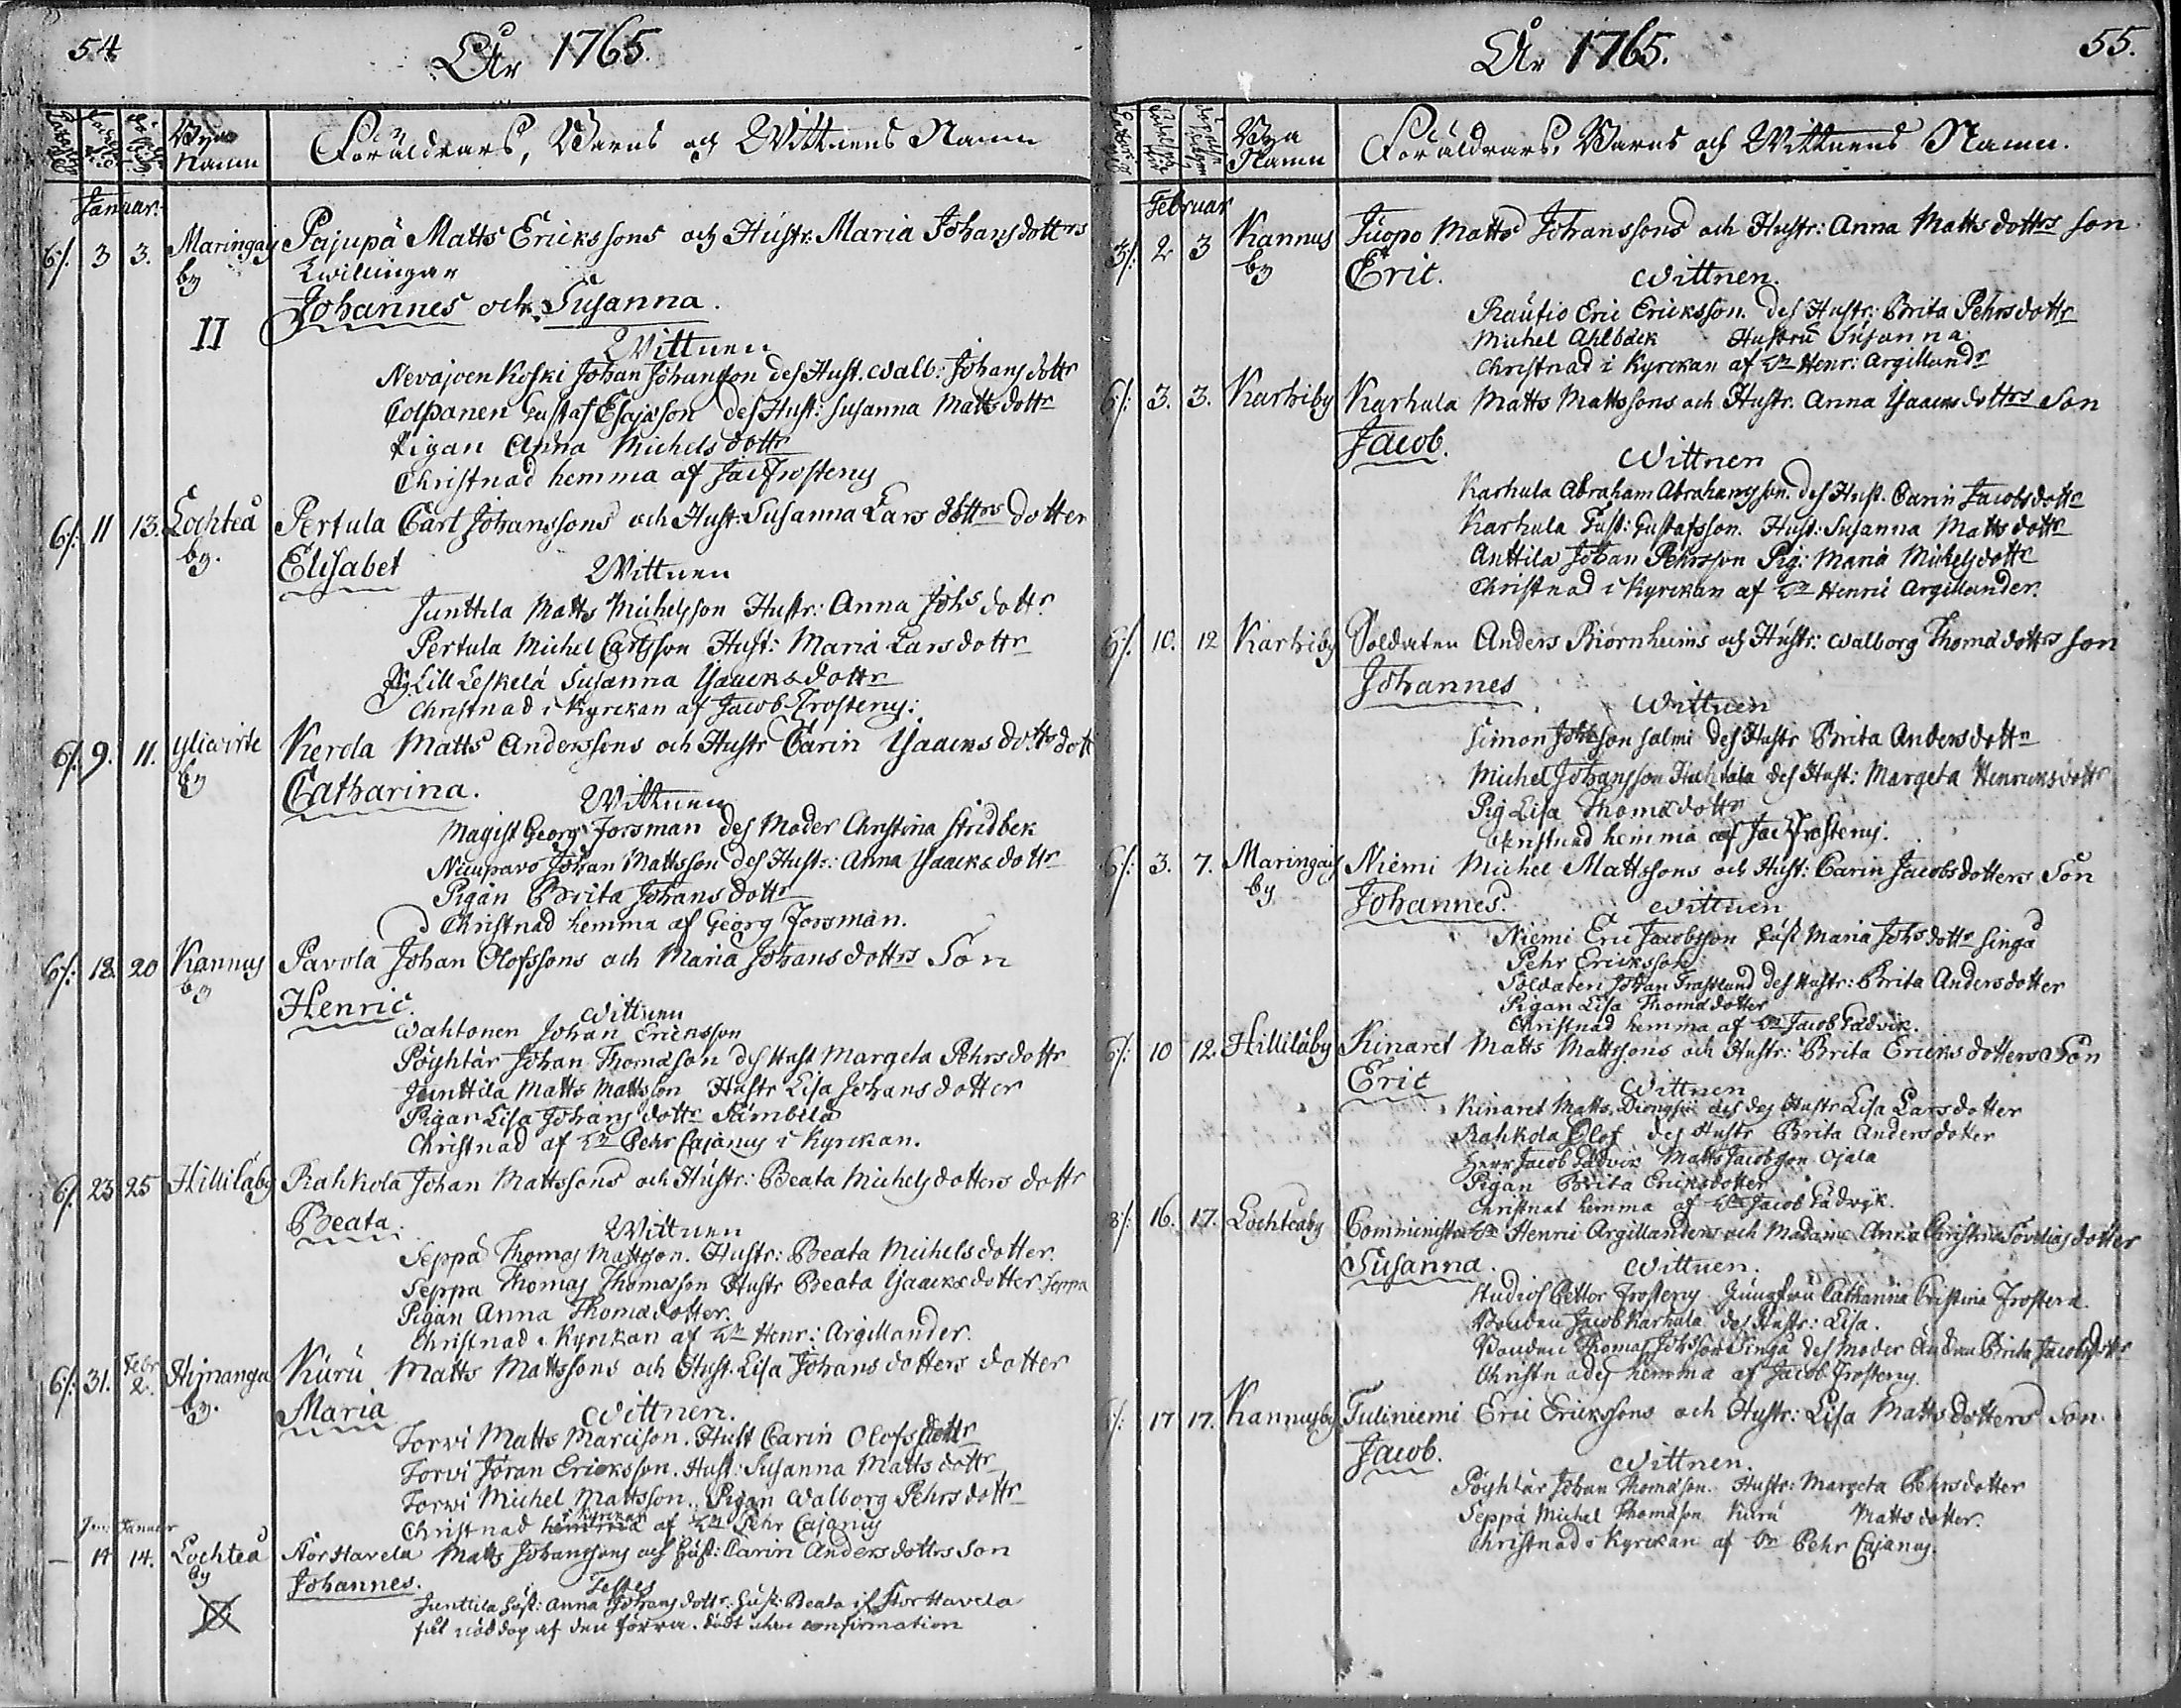 54
År 1765.
Byns Namn
Föräldrars, Barns och Wittnens Namn
Januar:
6/. 3 3. Maringais by Pajupä Matts Erickssons och Hustr: Maria Johansdottrs
Twillingar
II Johannes och Susanna.
Wittnen
Nevajoenkoski Johan Johansson des Hust. Walb: Johansdottr
Colpanen Gustaf Esajæson des Hust: Susanna Mattsdottr
Pigan Anna Michelsdottr
Christnad hemma af Jac Frosterus
6/. 11 13. Lochteå by. Pertula Carl Johanssons och Hust: Susanna Larsdottrs dotter
Elisabet Wittnen
Junttila Matts Michelsson Hustr: Anna Johsdottr
Pertula Michel Carlsson Hust: Maria Larsdottr
Pig Lill Leskelä Susanna Ysaacksdottr
Christnad i Kyrckan af Jacob Frosterus:
6/. 9. 11. Yliwirte by Kerola Matts Anderssons och Hustr Carin Ysaacks dottrs dott
Catharina. Wittnen
Magist Georg Forsman des Moder Christina Stridbek
Niemparvo Johan Mattsson des Hustr: Anna Ysaacksdottr
Pigan Brita Johansdottr
Christnad hemma af Georg Forsman.
6/: 18. 20 Kannus by Pavola Johan Olofssons och Maria Johansdottrs Son
Henric. Wittnen
Wahtonen Johan Ericksson
Pöyhtär Johan Thomason des Hust Margeta Pehrsdottr
Junttila Matts Mattsson Hustr Lisa Johansdotter
Pigan Lisa Johansdottr Simbila
Christnad af Hr Pehr Cajanus i Kyrckan.
6/. 23 25 Hilliläby Rahkola Johan Mattssons och Hustr: Beata Michelsdotters dottr
Beata. Wittnen
Seppä Thomas Mattsson. Hustr: Beata Michelsdotter.
Seppa Thomas Thomasson Hustr Beata Ysaacksdotter Seppa
Pigan Anna Thomædotter.
Christnad i Kyrckan af Hr Henr: Argillander.
6/: 31. Febr 2. Himanga by. Kuru Matts Mattssons och Hust. Lisa Johansdotters dotter
Maria Wittnen.
Torvi Matts Marcison. Hust Carin Olofsdottr
Torvi Jöran Ericksson. Hust: Susanna Mattsdottr
Torvi Michel Mattsson. Pigan Walborg Pehrsdottr
i kyrckan
Christnad hemma af Hr Pehr Cajanus
Januar
— 14 14. Lochteå by Stor Havela Matts Johanssons och Hust: Carin Andersdottrs Son
Johannes. Testes
Junttila Hust: Anna Johansdottr: Hust: Beata ifr Stor Havela
fåt nöddop af den förra. dödt utan confirmation
55.
År 1765.
Bya Namn
Föräldrars, Barns och Wittnens Namn.
Februar
3/: 2 3 Kannus by Juopo Matts Johanssons och Hustr: Anna Mattsdottrs Son
Eric. Wittnen.
Rautio Eric Ericksson. des Hustr: Brita Pehrsdottr
Michel Ahlbäck Hustru Susanna.
Christnad i Kyrckan af Hr Henr: Argillandr
6/: 3. 3. Karhiby Karhula Matts Mattssons och Hustr. Anna Ysaacksdottrs Son
Jacob. Wittnen
Karhula Abraham Abrahamsson. des Hust. Carin Jacobsdottr
Karhula Gust: Gustafsson. Hust: Susanna Mattsdottr
Anttila Johan Pehrsson Pig: Maria Michelsdottr
Christnad i Kyrckan af Hr Henric Argillander.
6/. 10. 12 Karhiby Soldaten Anders Biörnheims och Hustr: Walborg Thomædottrs Son
Johannes Wittnen
Simon Johsson Salmi des Hustr Brita Andersdottr
Michel Johansson Huhtala des Hust: Margeta Henricksdottr
Pig Lisa Thomædottr
Christnad hemma af Jac Frosterus.
6/: 3. 7. Maringais by Niemi Michel Mattssons och Hust: Carin Jacobsdotters Son
Johannes. Wittnen
Niemi Eric Jacobsson Hust Maria Johsdottr Singa
Pehr Ericksson
Soldaten Johan Frasslund des Hustr: Brita Andersdotter
Pigan Lisa Thomædotter
Christnad hemma af Hr Jacob Gadvik.
6/: 10 12. Hilliläby Kinaret Matts Mattssons och Hustr: Brita Ericksdotters Son
Eric Wittnen
Kinaret Matts des Hustr Lisa Larsdotter
Rahkola Olof des Hustr Brita Andersdotter
Herr Jacob Gadvik Matts Jacobsson Ojala
Pigan Brita Ericksdotter
Christnat hemma af Hr Jacob Gadvik.
8/: 16. 17. Lochteåby Comministr Hr Henric Argillanders och Madame Anna Christina dotter
Susanna. Wittnen.
Studios Petter Frosterus Jungfru Catharina Cristina Frostera.
Bonden Jacob Karhula des Hustr: Lisa.
Bonden Thomas Johsson Singa des Moder Änckan Brita Jacobsdottr
Christnades hemma af Jacob Frosterus.
6/: 17 17. Kannusby Tuliniemi Eric Erickssons och Hustr: Lisa Mattsdotters Son.
Jacob. Wittnen.
Pöyhtär Johan Thomæson. Hustr: Margeta Pehrsdotter
Seppä Michel Thomæson Kuru Mattsdotter.
Christnad i Kyrckan af Hr Pehr Cajanus.